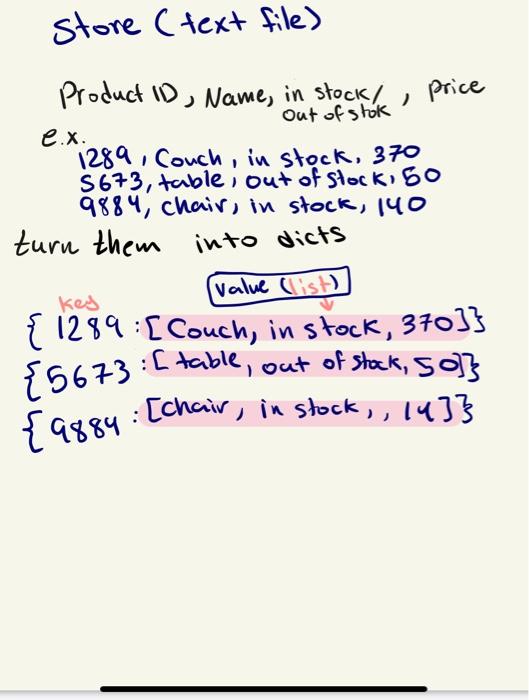 Store (text file)
Product ID, Name, in stock/ , Price
Out of stok
e.x.
1289, Couch, in stock, 370
5673, table, out of stock, 50
9884, chair, in stock, 140
turn them into dicts
value (list)
key
{ 1289 : [Couch, in stock, 370]}
{5673 : [table, out of stock, 50]}
{9884 : [chair, in stock, , 14]}